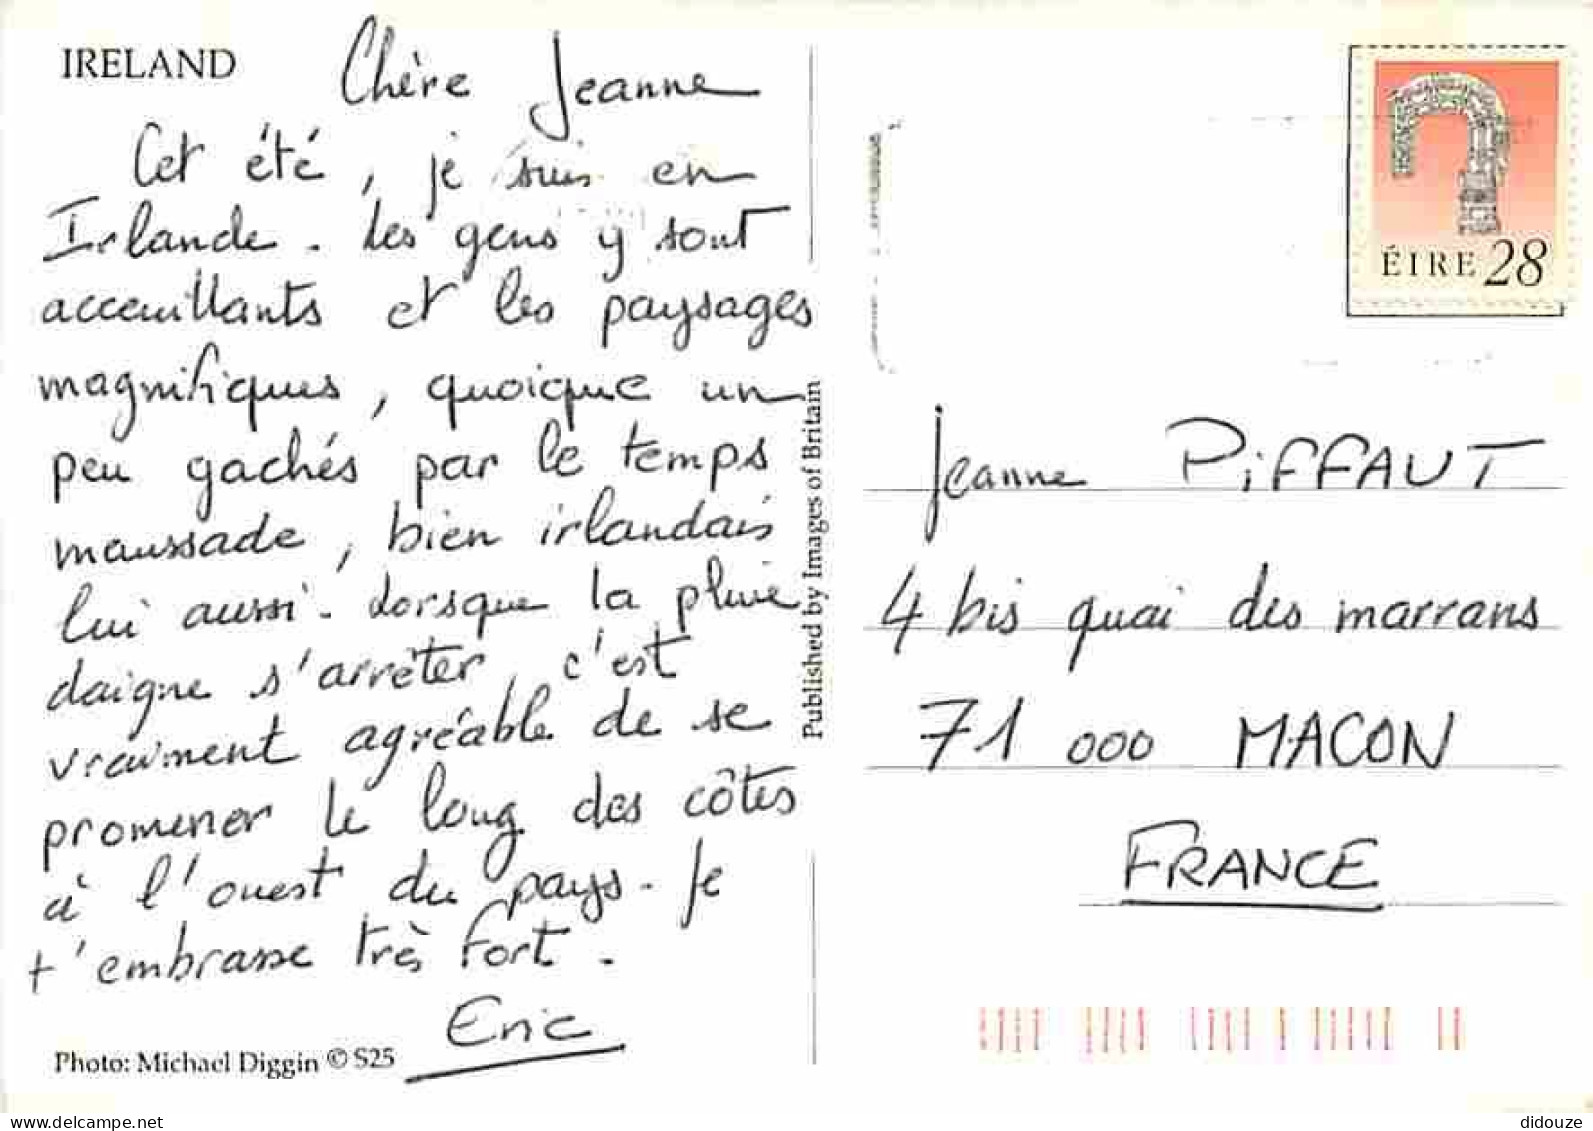 IRELAND
Chère Jeanne
Cet été, je suis en
Irlande. Les gens y sont
acceuillants et les paysages
magnifiques, quoique un
peu gachés par le temps
maussade, bien irlandais
lui aussi. Lorsque la pluie
daigne s'arrêter, c'est
vraiment agréable de se
promener le long des côtes
à l'ouest du pays. Je
t'embrasse très fort.
Eric
Photo: Michael Diggin © S25
Published by Images of Britain
ÉIRE 28
Jeanne PIFFAUT
4 bis quai des marrans
71 000 MACON
FRANCE
https://www.delcampe.net
didouze